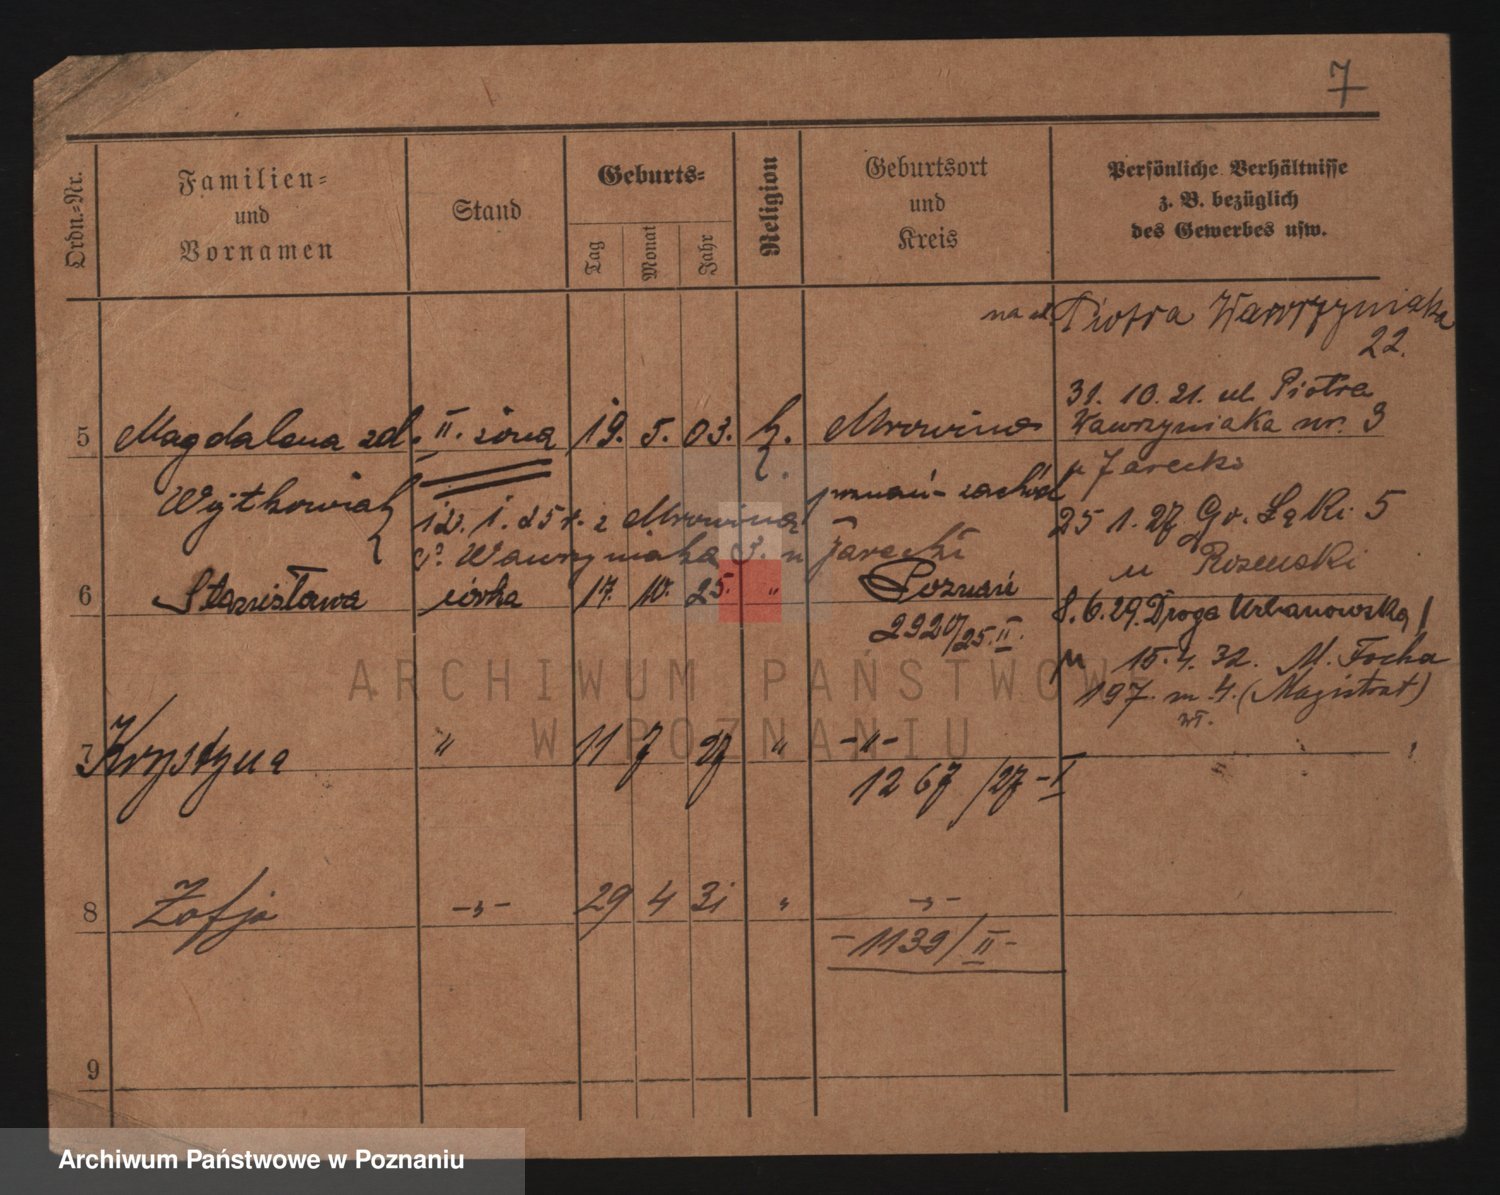 7
Ordn.-Nr.
Familien-
und
Vornamen
Stand
Geburts-
Tag
Monat
Jahr
Religion
Geburtsort
und
Kreis
Persönliche Verhältnisse
z. B. bezüglich
des Gewerbes usw.
na ul. Piotra Wawrzyniaka
22.
5 Magdalena zd. II. żona 19. 5. 03. k. Mrowino
Wojtkowiak
poznań-zachód
12. 1. 25 r. z Mrowina
P. Wawrzyniaka 3. u Jarecki
31. 10. 21. ul. Piotra
Wawrzyniaka nr. 3
u Jarecki
25 1. 27 Gr. Łąki 5
u Rozenski
6 Stanisława córka 17. 10. 25. " Poznań
2920/25.II.
8. 6. 29. Droga Urbanowska 1
15. 4. 32. M. Focha
197. m. 4. (Magistrat)
wł.
7 Krystyna " 11 7 27 " -"-
1267/27-I
8 Zofja -"- 29 4 31 " -"-
-1139/II-
9
ARCHIWUM PAŃSTWOWE
W POZNANIU
Archiwum Państwowe w Poznaniu